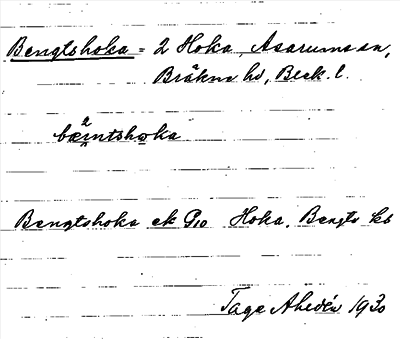 Bengtshoka = 2 Hoka, Asarums sn,
Bräkne hd, Blek. l.
2
bæ̂ntshoka
Bengtshoka ek G10 Hoka. Bengts kb
Tage Ahldén 1930